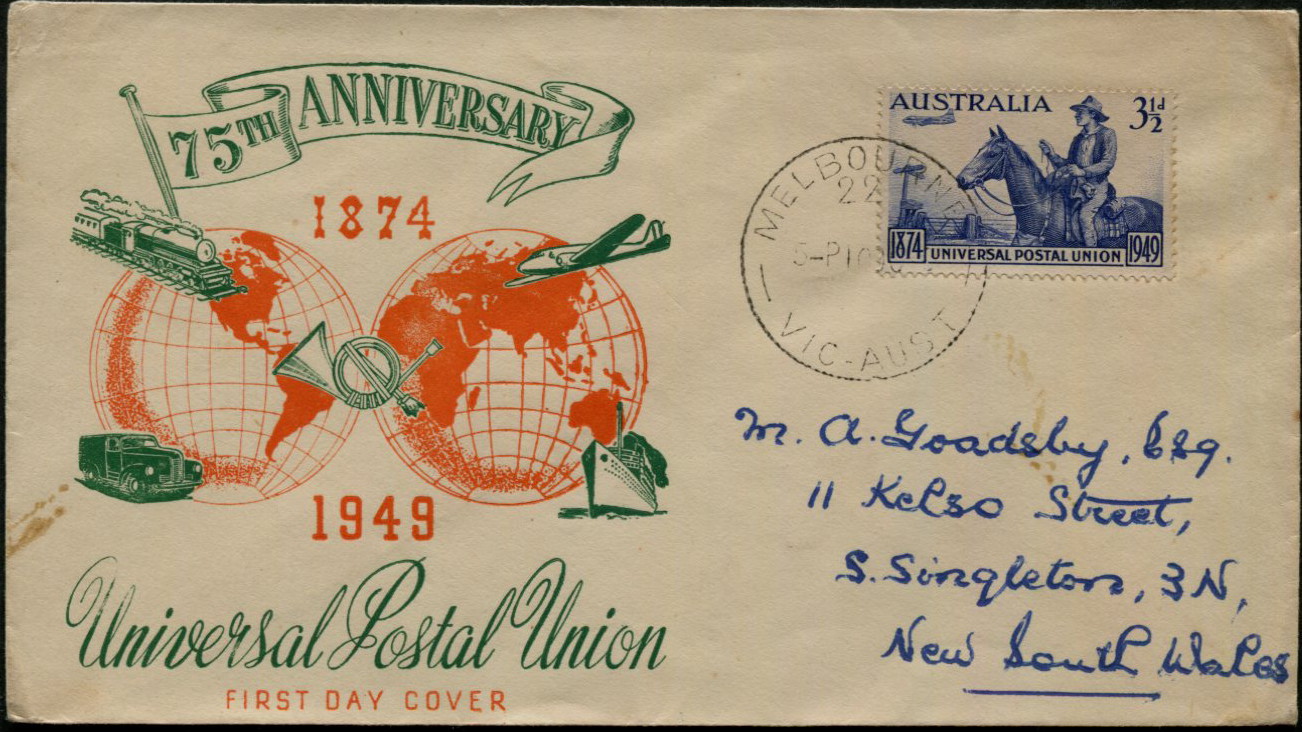 75TH ANNIVERSARY
1874
1949
Universal Postal Union
FIRST DAY COVER
AUSTRALIA 3½d
1874 UNIVERSAL POSTAL UNION 1949
MELBOURNE
22
5-P10
VIC-AUST
M. A. Goadsby, Esq.
11 Kelso Street,
S. Singleton, 3N,
New South Wales